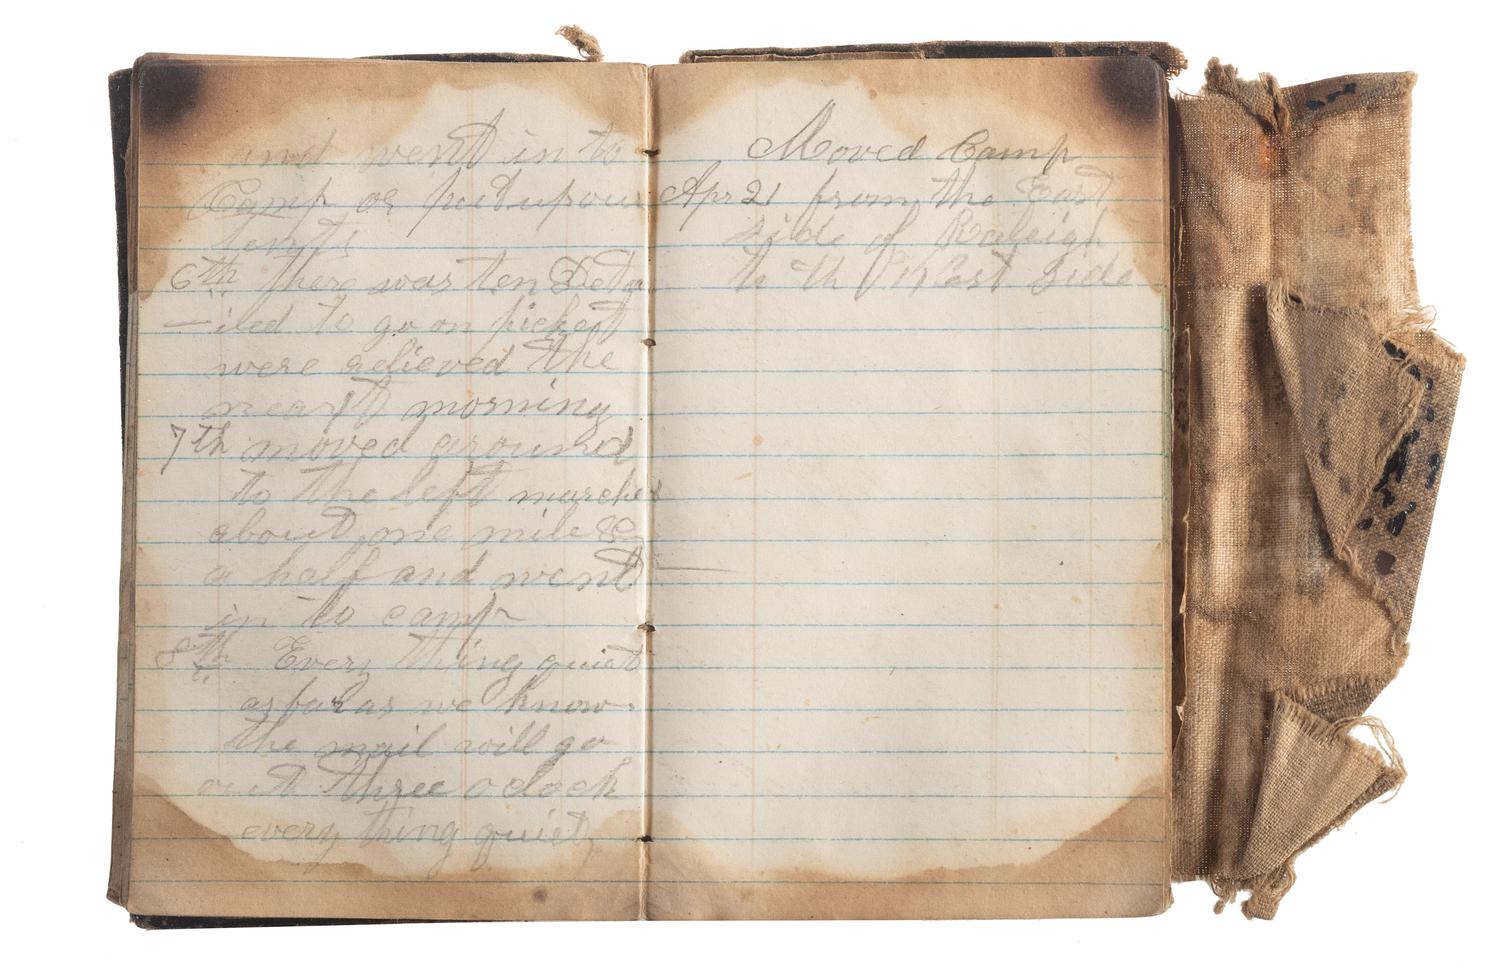 and went in to
Camp or put up our
tents
6th there was ten Deta
—iled to go on picket
were relieved the
next morning
7th moved around
to the left marched
about one mile &
a half and went
in to camp
8th Every thing quiet
as far as we know
the mail will go
out three oclock
every thing quiet
Moved Camp
Apr 21 from the East
side of Raleigh
to the West Side